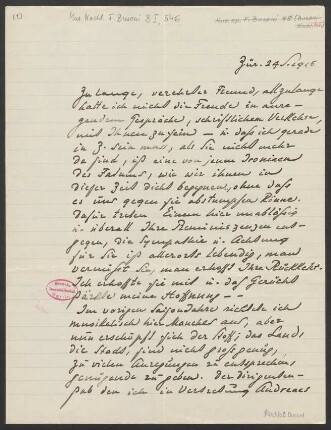 (1)
Mus. Nachl. F. Busoni B I, 546
Mus. ep. F. Busoni
Zür. 24 S. 1916
Zu lange, verehrter Freund, allzulange
hatte ich nicht die Freude in anre-
gendem Gespräche, schriftlichem Verkehre,
mit Ihnen zu sein – u. dass ich gerade
in Z. sein muss, als Sie nicht mehr
da sind, ist eine von jenen Ironieen
des Fatums, wie wir ihnen in
dieser Zeit dicht begegnen, ohne dass
es uns gegen sie abstumpfen könne.
Dafür treten Einem hier unablässig
u. überall Ihre Reminiszenzen ent-
gegen, die Sympathie u. Achtung
für Sie ist allerorts lebendig, man
vermisst Sie, man erhofft Ihre Rückkehr.
Ich erhoffte sie mit u. das Gerücht
stärkte meine Hoffnung – –
Im vorigen Saisonjahre richtete ich
musikalisch hier Manches aus, aber
nun erschöpft sich der Stoff; das Land,
die Stadt, sind nicht gross genug,
zu vielen Anregungen zu entsprechen,
genügende zu geben. Der Dirigenten-
stab den ich in Vertretung Andreaes